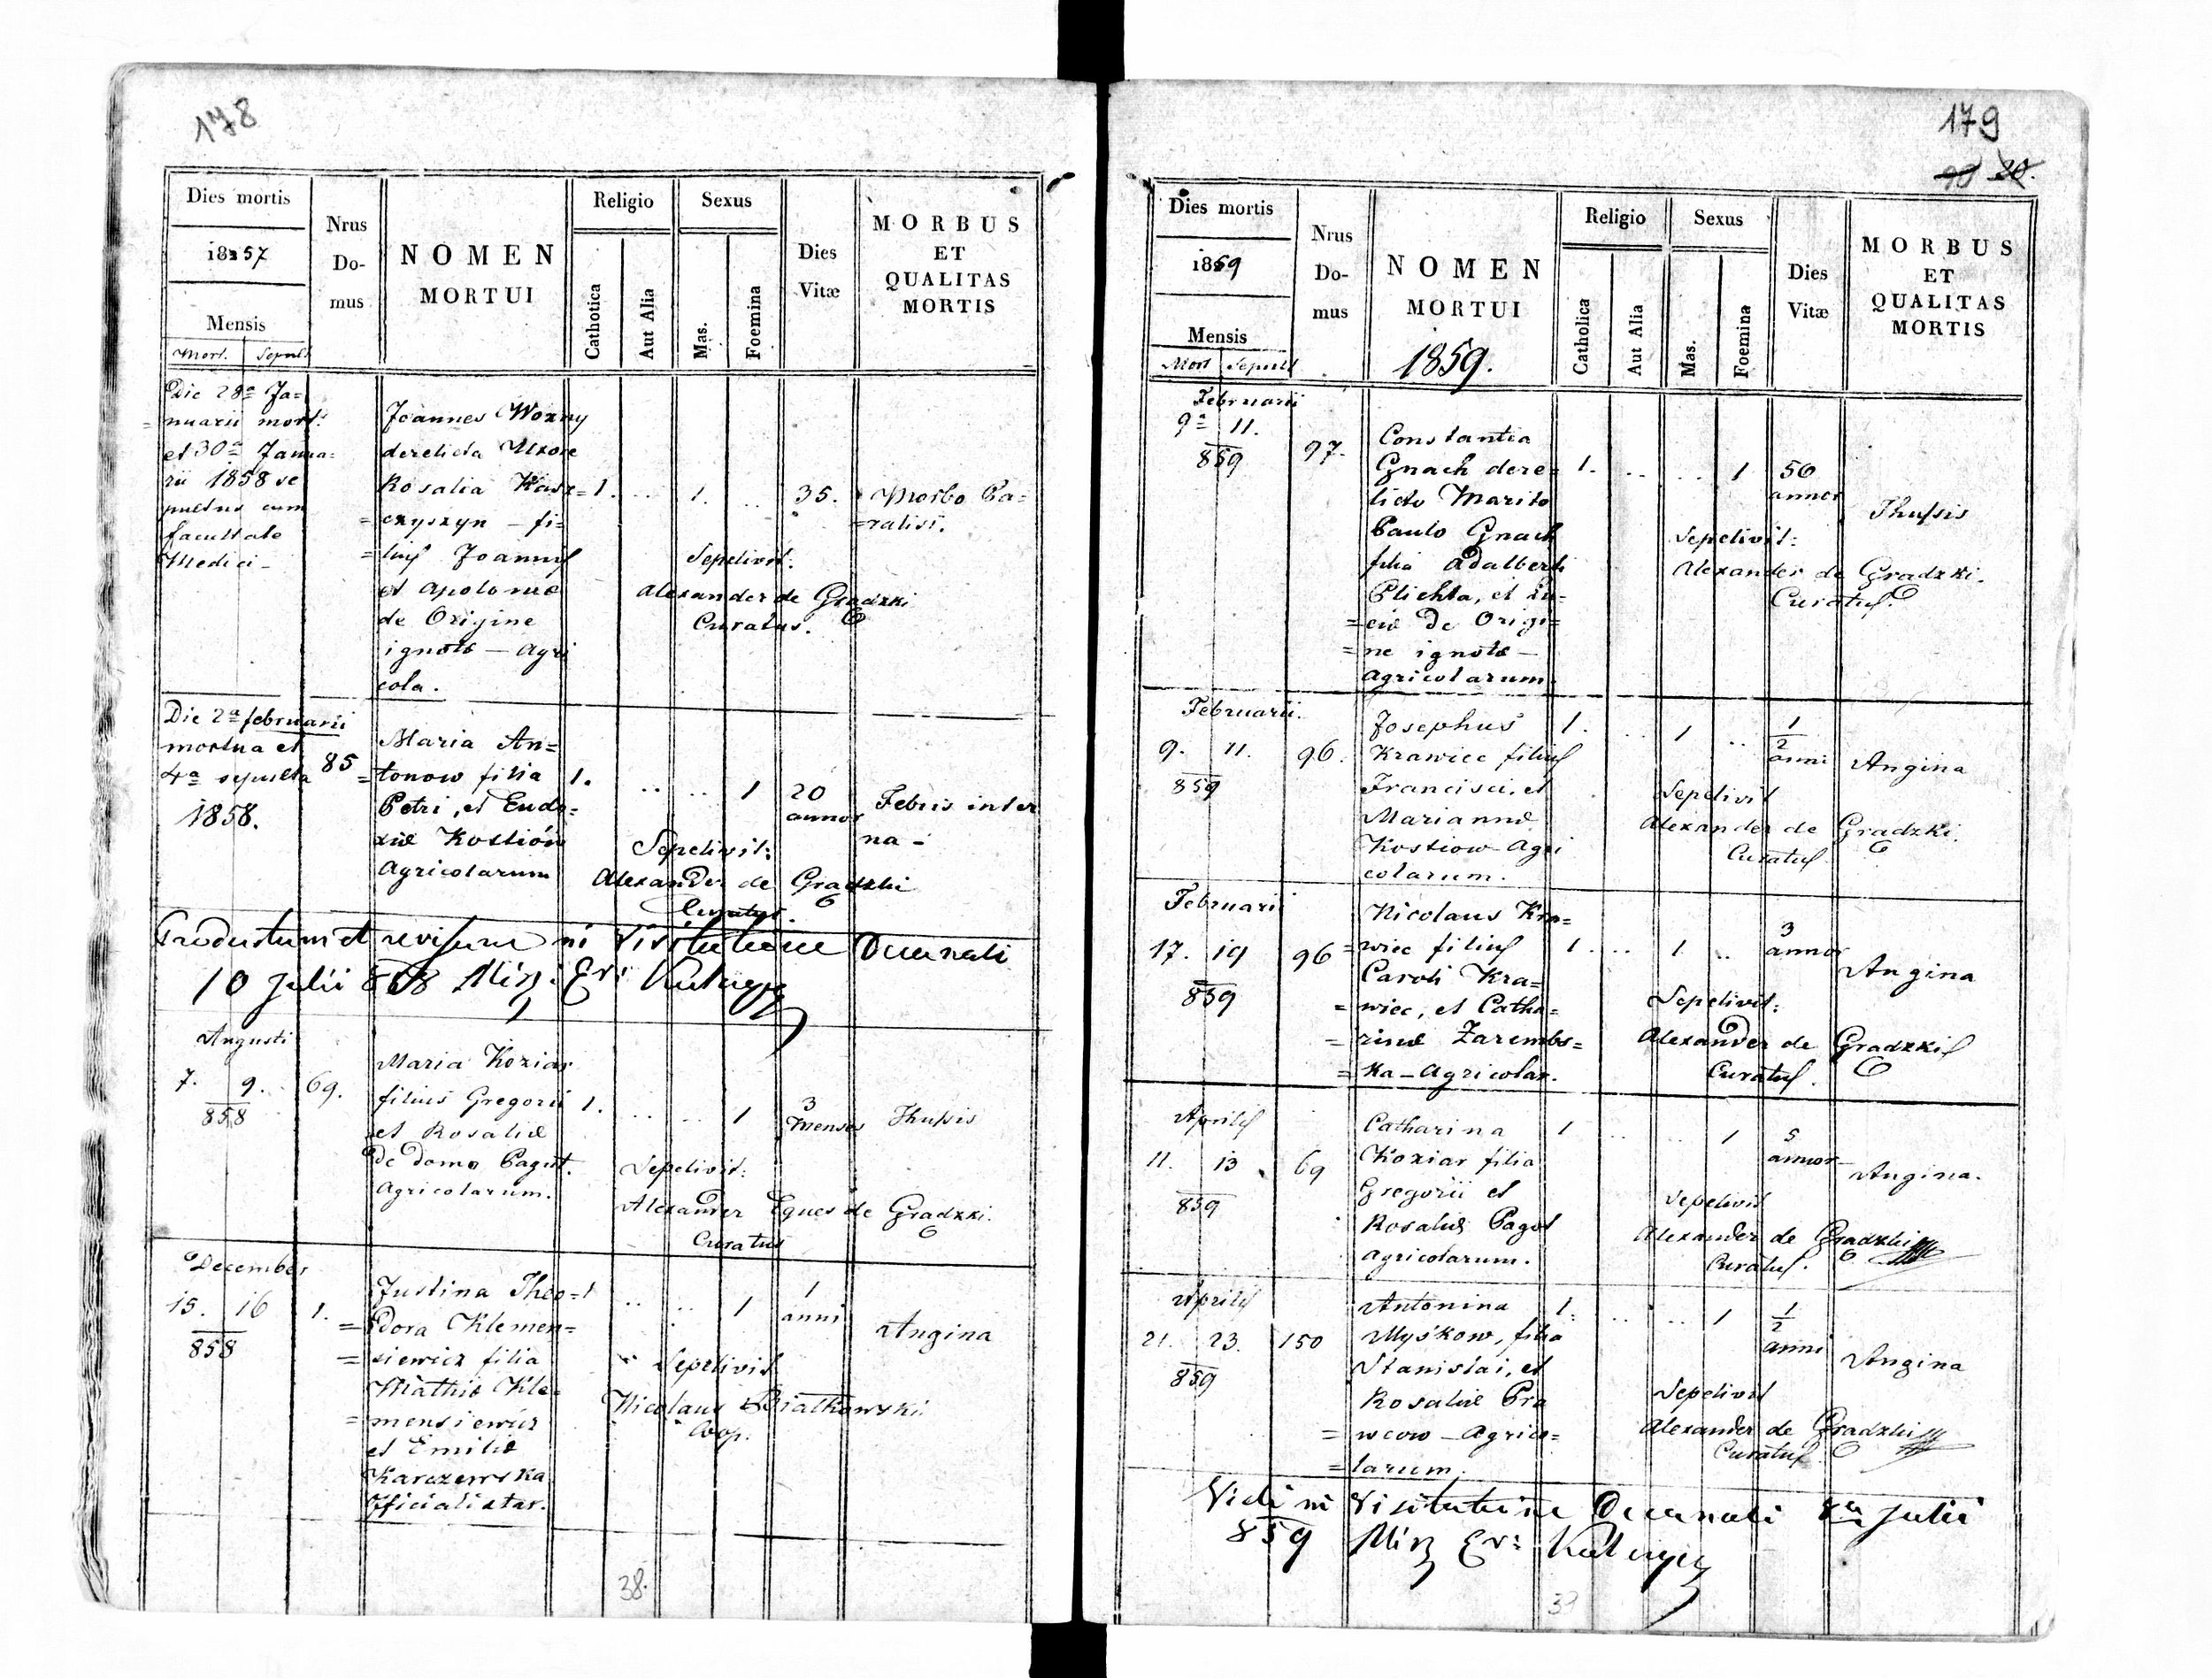 178
Dies mortis
1857
Mensis
Mort. Sepult
Nrus Do- mus
NOMEN MORTUI
Religio
Cathotica
Aut Alia
Sexus
Mas.
Foemina
Dies Vitæ
MORBUS ET QUALITAS MORTIS
Die 28a Ja=
nuarii mort:
et 30a Janua=
rii 1858 se
pultus cum
facultate
Medici -
Joannes Woxny
derelicta Uxore
Rosalia Kasz=
=czyszyn - fi=
=lius Joannis
et Apoloniae
de Origine
ignota - Agri
cola.
1. .. 1. .. 35.
Morbo Pa=
=ralisi.
Sepelivit.
Alexander de Gradzki
Curatus.
Die 2a februarii
mortua et
4a sepulta
1858.
85
Maria An=
=tonow filia
Petri, et Eudo=
xiæ Kostiów
Agricolarum
1. .. .. 1 20
annor
Febris inter
na -
Sepelivit:
Alexander de Gradzki
Curatus.
Productum et revisum in Visitatione Decanali
10 Julii 858
Augusti
7. 9.
858
69.
Maria Koziar
filius Gregorii
et Rosaliæ
de domo Pagut.
Agricolarum.
1. .. .. 1 3
menses
Thussis
Sepelivit:
Alexander Eques de Gradzki.
Curatus
December
15. 16
858
1.
Justina Theo=
=dora Klemen=
=siewicz filia
Mathiæ Kle=
=mensiewicz
et Emiliæ
Karczewska
Oficialistar.
1 .. .. 1 1
anni
Angina
Sepelivit
Nicolaus Białkowski
Coop.
38.
179
20.
Dies mortis
1859
Mensis
Mort Sepult
Nrus Do- mus
NOMEN MORTUI
1859.
Religio
Catholica
Aut Alia
Sexus
Mas.
Foemina
Dies Vitæ
MORBUS ET QUALITAS MORTIS
Februarii
9a 11.
859
97.
Constantia
Gnach dere=
licto Marito
Paulo Gnach
filia Adalberti
Plichta, et Lu=
=ciæ de Origi=
=ne ignota -
Agricolarum.
1. .. .. 1 50
annor
Thussis
Sepelivit:
Alexander de Gradzki.
Curatus.
Februarii.
9. 11.
859
96.
Josephus
Krawiec filius
Francisci, et
Mariannæ
Kostiow Agri
colarum.
1. .. 1 .. 1/2
anni
Angina
Sepelivit
Alexander de Gradzki.
Curatus
Februarii
17. 19
859
96
Nicolaus Kra=
=wiec filius
Caroli Kra=
=wiec, et Catha=
=rinæ Zarembs=
=ka - Agricolar.
1. .. 1. .. 3
annor
Angina
Sepelivit:
Alexander de Gradzki
Curatus.
Aprilis
11. 13
859
69
Catharina
Koziar filia
Gregorii et
Rosaliæ Pagot
Agricolarum.
1 .. .. 1 5
annor
Angina.
Sepelivit
Alexander de Gradzki
Curatus.
Aprilis
21. 23.
859
150
Antonina
Myśkow, filia
Stanislai, et
Rosaliæ Pra
=wcow - Agrico=
=larum.
1. .. .. 1 1/2
anni
Angina
Sepelivit
Alexander de Gradzki
Curatus.
Vidi in Visitatione Decanali Julii
859